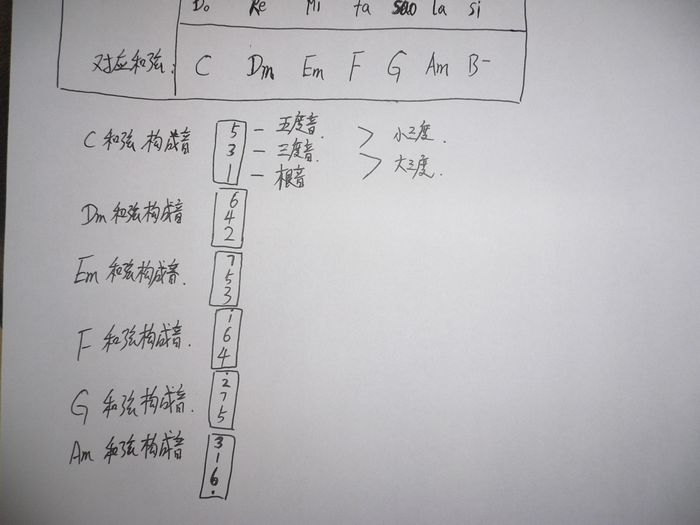 Do Re Mi fa sao la si
对应和弦: C Dm Em F G Am B-
C 和弦构成音 5 - 五度音. > 小三度.
3 - 三度音. > 大三度.
1 - 根音
Dm 和弦构成音 6
4
2
Em 和弦构成音. 7
5
3
F 和弦构成音. i
6
4
G 和弦构成音. 2̇
7
5
Am 和弦构成音 3
1
6̣